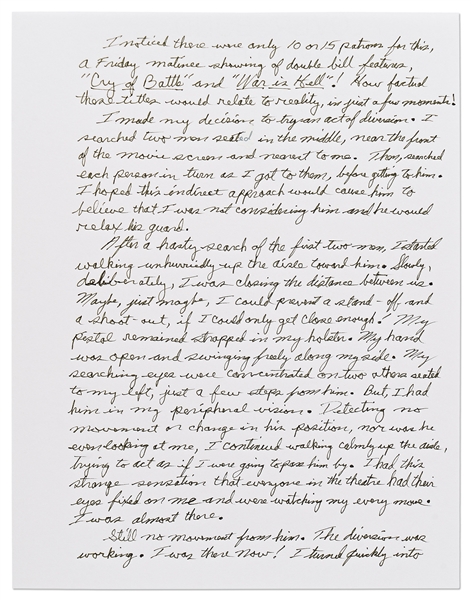 I noticed there were only 10 or 15 patrons for this,
a Friday matinee showing of double bill features,
"Cry of Battle" and "War is Hell"! How factual
these titles would relate to reality, in just a few moments!
I made my decision to try an act of diversion. I
searched two men seated in the middle, near the front
of the movie screen and nearest to me. Then, searched
each person in turn as I got to them, before getting to him.
I hoped this indirect approach would cause him to
believe that I was not considering him and he would
relax his guard.
After a hasty search of the first two men, I started
walking unhurriedly up the aisle toward him. Slowly,
deliberately, I was closing the distance between us.
Maybe, just maybe, I could prevent a stand-off and
a shoot-out, if I could only get close enough! My
pistol remained strapped in my holster. My hand
was open and swinging freely along my side. My
searching eyes were concentrated on two others seated
to my left, just a few steps from him. But, I had
him in my peripheral vision. Detecting no
movement or change in his position, nor was he
even looking at me, I continued walking calmly up the aisle,
trying to act as if I were going to pass him by. I had this
strange sensation that everyone in the theatre had their
eyes fixed on me and were watching my every move.
I was almost there.
Still no movement from him. The diversion was
working. I was there now! I turned quickly into